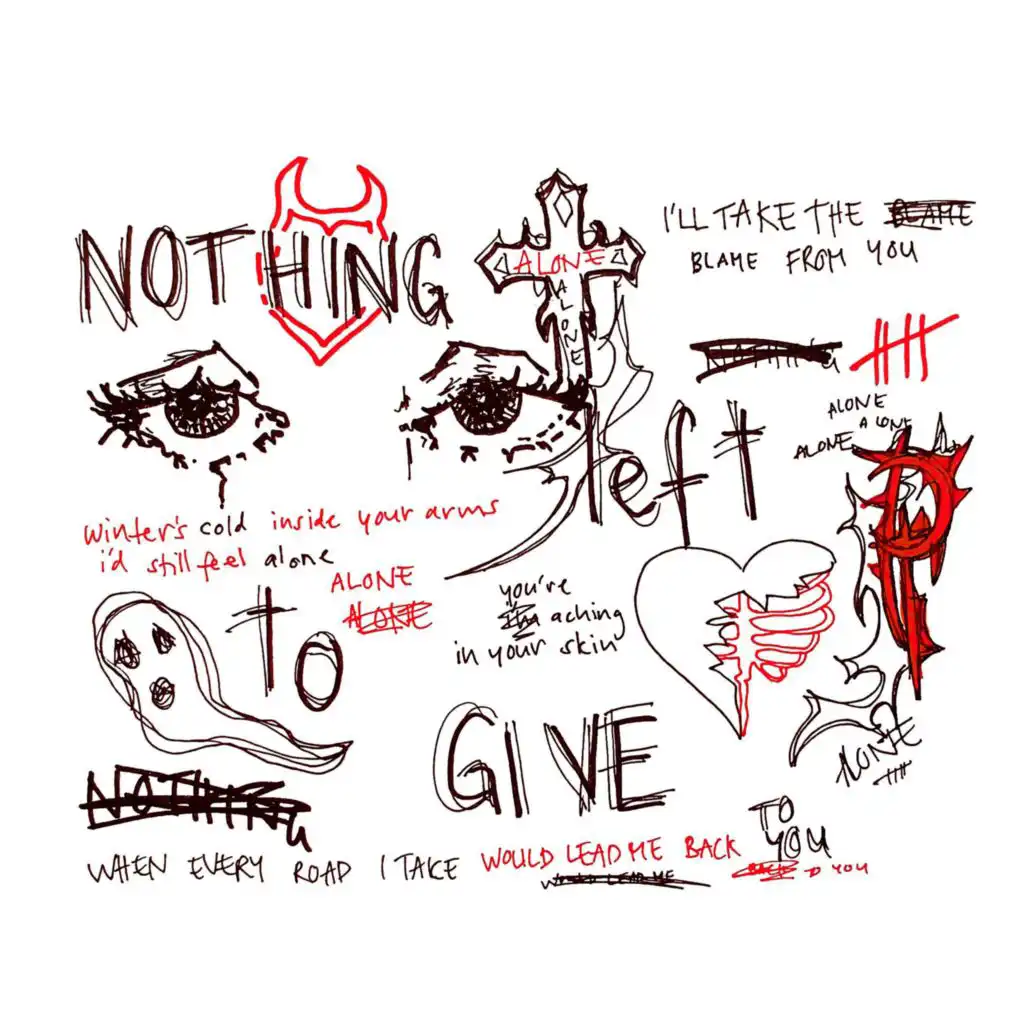 NOTHING
ALONE
ALONE
I'LL TAKE THE BLAME
BLAME FROM YOU
ALONE
ALONE
ALONE
left
winter's cold inside your arms
i'd still feel alone
ALONE
ALONE
to
you're
aching
in your skin
GIVE
ALONE
NOTHING
TO
YOU
WHEN EVERY ROAD I TAKE WOULD LEAD ME BACK
WOULD LEAD ME
BACK TO YOU